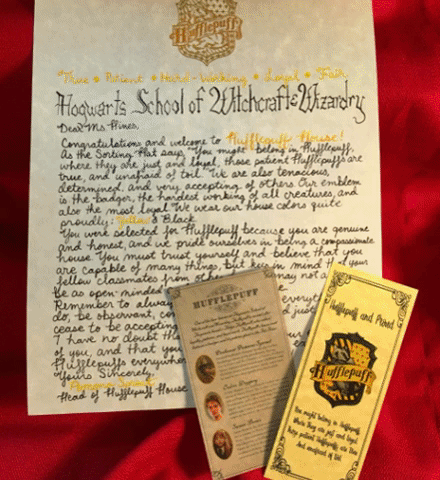 Hufflepuff
True • Patient • Hard-Working • Loyal • Fair
Hogwarts School of Witchcraft & Wizardry
Dear Ms Hines,
Congratulations and welcome to Hufflepuff House!
As the Sorting Hat says, "You might belong in Hufflepuff,
where they are just and loyal, those patient Hufflepuffs are
true, and unafraid of toil." We are also tenacious,
determined, and very accepting of others. Our emblem
is the badger, the hardest working of all creatures, and
also the most loyal. We wear our house colors quite
proudly: Yellow & Black.
You were selected for Hufflepuff because you are genuine
and honest, and we pride ourselves in being a compassionate
house. You must trust yourself and believe that you
are capable of many things, but keep in mind that your
fellow classmates from other may not a
be as open-minded
Remember to always everyt
do, be observant, con d just
cease to be accepting
I have no doubt tha
of you, and that you
Hufflepuffs everywhere
Yours Sincerely,
Pomona Sprout
Head of Hufflepuff House
HUFFLEPUFF
Cedric Diggory
Hufflepuff and Proud
Hufflepuff
You might belong in Hufflepuff
Where they are just and loyal
Those patient Hufflepuffs are true
And unafraid of toil